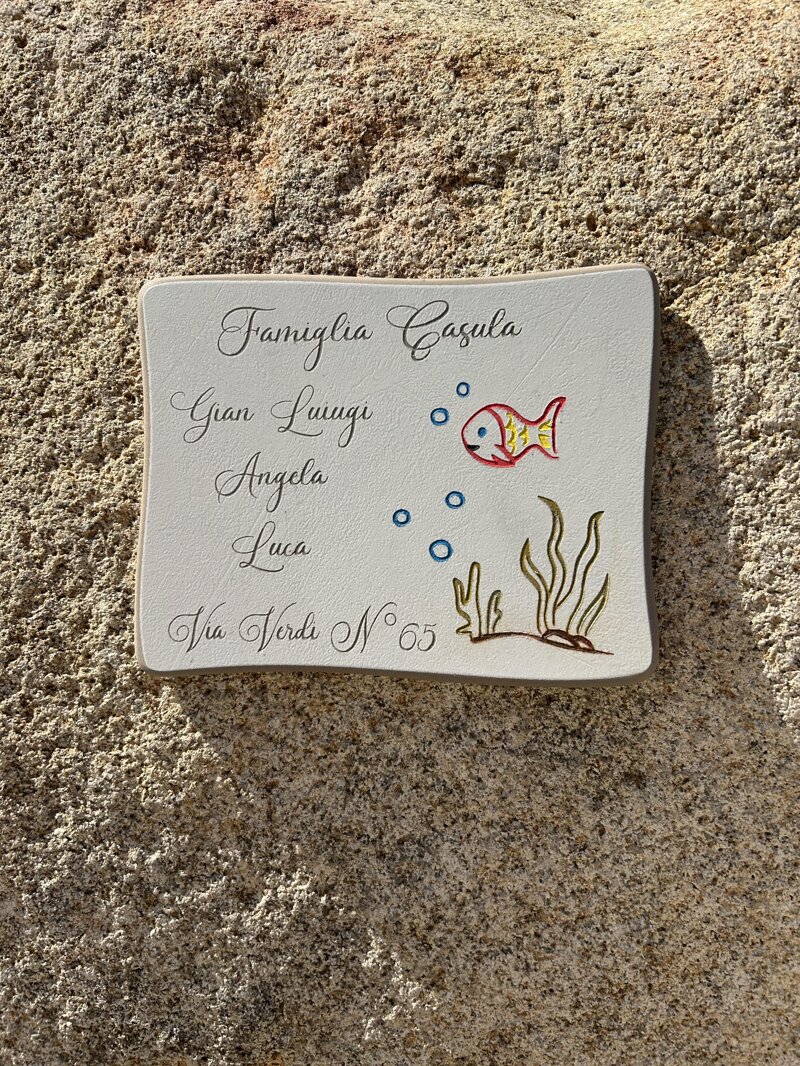 Famiglia Casula
Gian Luiugi
Angela
Luca
Via Verdi N° 65